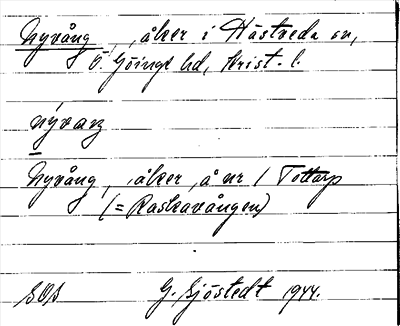 Nyvång, åker i Hästveda sn,
Ö. Göinge hd, Krist. l.
nývaŋ
Nyvång, åker, å nr 1 Tottarp
(= Raskavången)
SOA
G. Sjöstedt 1944.